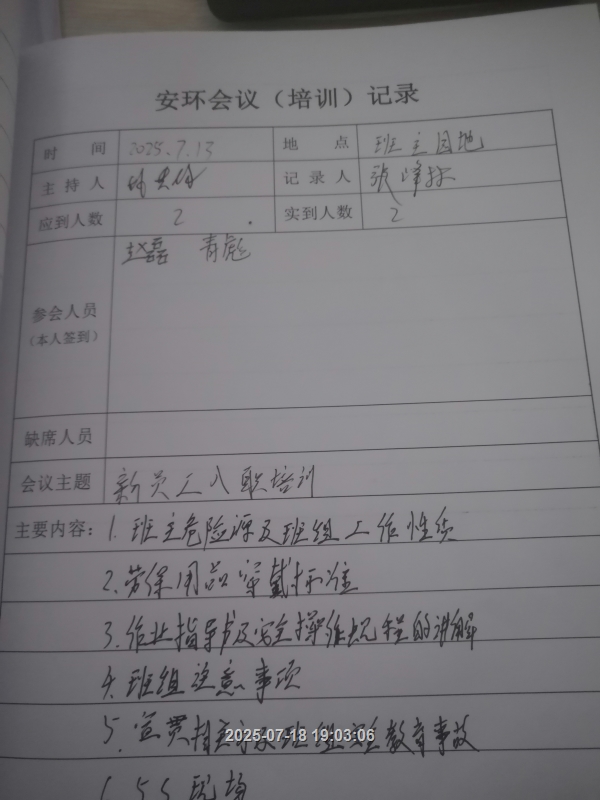 安环会议（培训）记录
时间 2025.7.13 地点 班主园地
主持人 记录人 张峰
应到人数 2 实到人数 2
赵磊 青彪
参会人员
（本人签到）
缺席人员
会议主题 新员工入职培训
主要内容：1. 班主危险源及班组工作性质
2. 劳保用品穿戴标准
3. 作业指导书及安全操作规程的讲解
4. 班组注意事项
5. 宣贯 班组安全教育事故
2025-07-18 19:03:06
5S现场